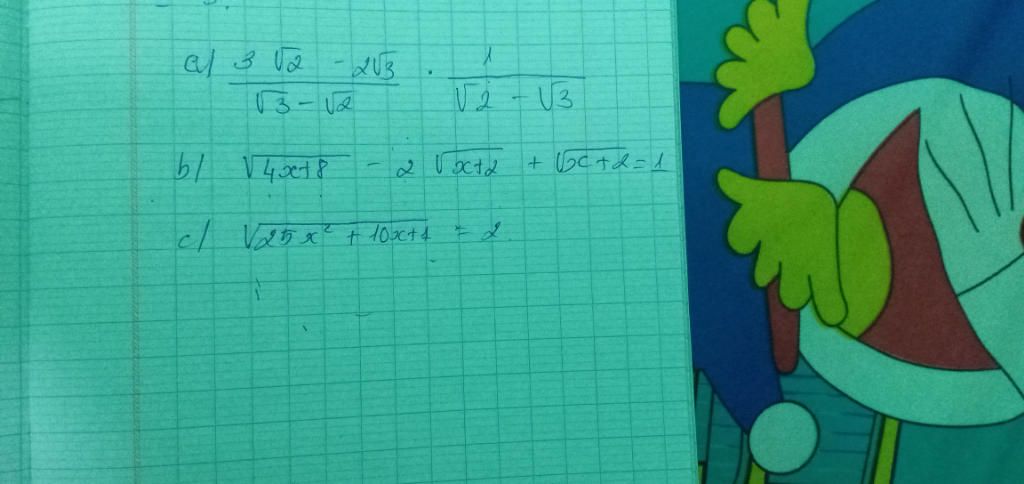 a) (3√2 - 2√3)/(√3 - √2) . 1/(√2 - √3)
b) √(4x+8) - 2√(x+2) + √(x+2) = 1
c) √(25x² + 10x+1) = 2